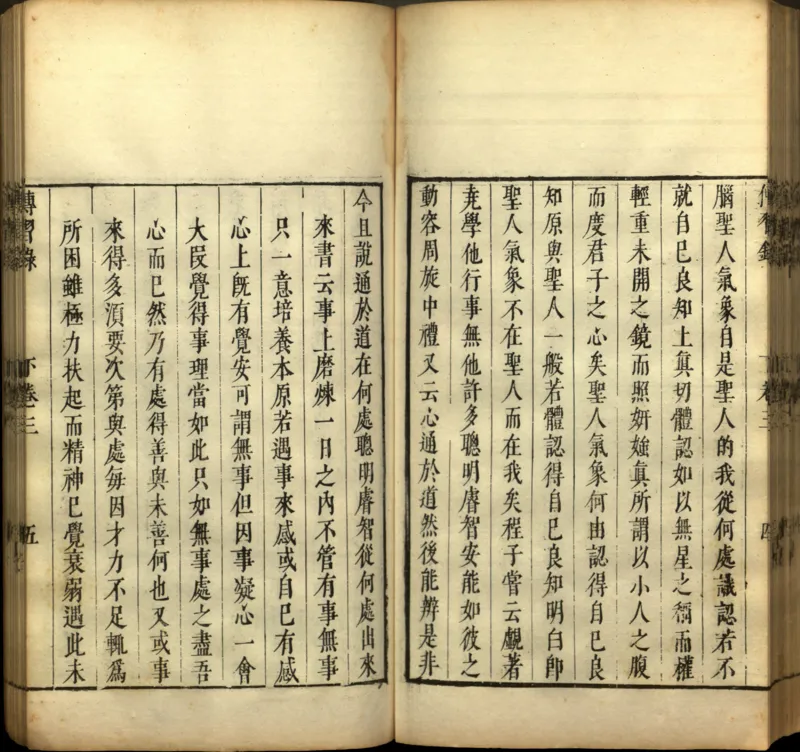 傳習錄
下卷三
四
腦聖人氣象自是聖人的我從何處識認若不
就自已良知上眞切體認如以無星之稱而權
輕重未開之鏡而照妍媸眞所謂以小人之腹
而度君子之心矣聖人氣象何由認得自已良
知原與聖人一般若體認得自已良知明白卽
聖人氣象不在聖人而在我矣程子嘗云覷著
堯學他行事無他許多聰明睿智安能如彼之
動容周旋中禮又云心通於道然後能辨是非
今且說通於道在何處聰明睿智從何處出來
來書云事上磨煉一日之內不管有事無事
只一意培養本原若遇事來感或自已有感
心上旣有覺安可謂無事但因事凝心一會
大段覺得事理當如此只如無事處之盡吾
心而已然乃有處得善與未善何也又或事
來得多湏要次第與處每因才力不足輒爲
所困雖極力扶起而精神已覺衰弱遇此未
傳習錄
下卷三
五